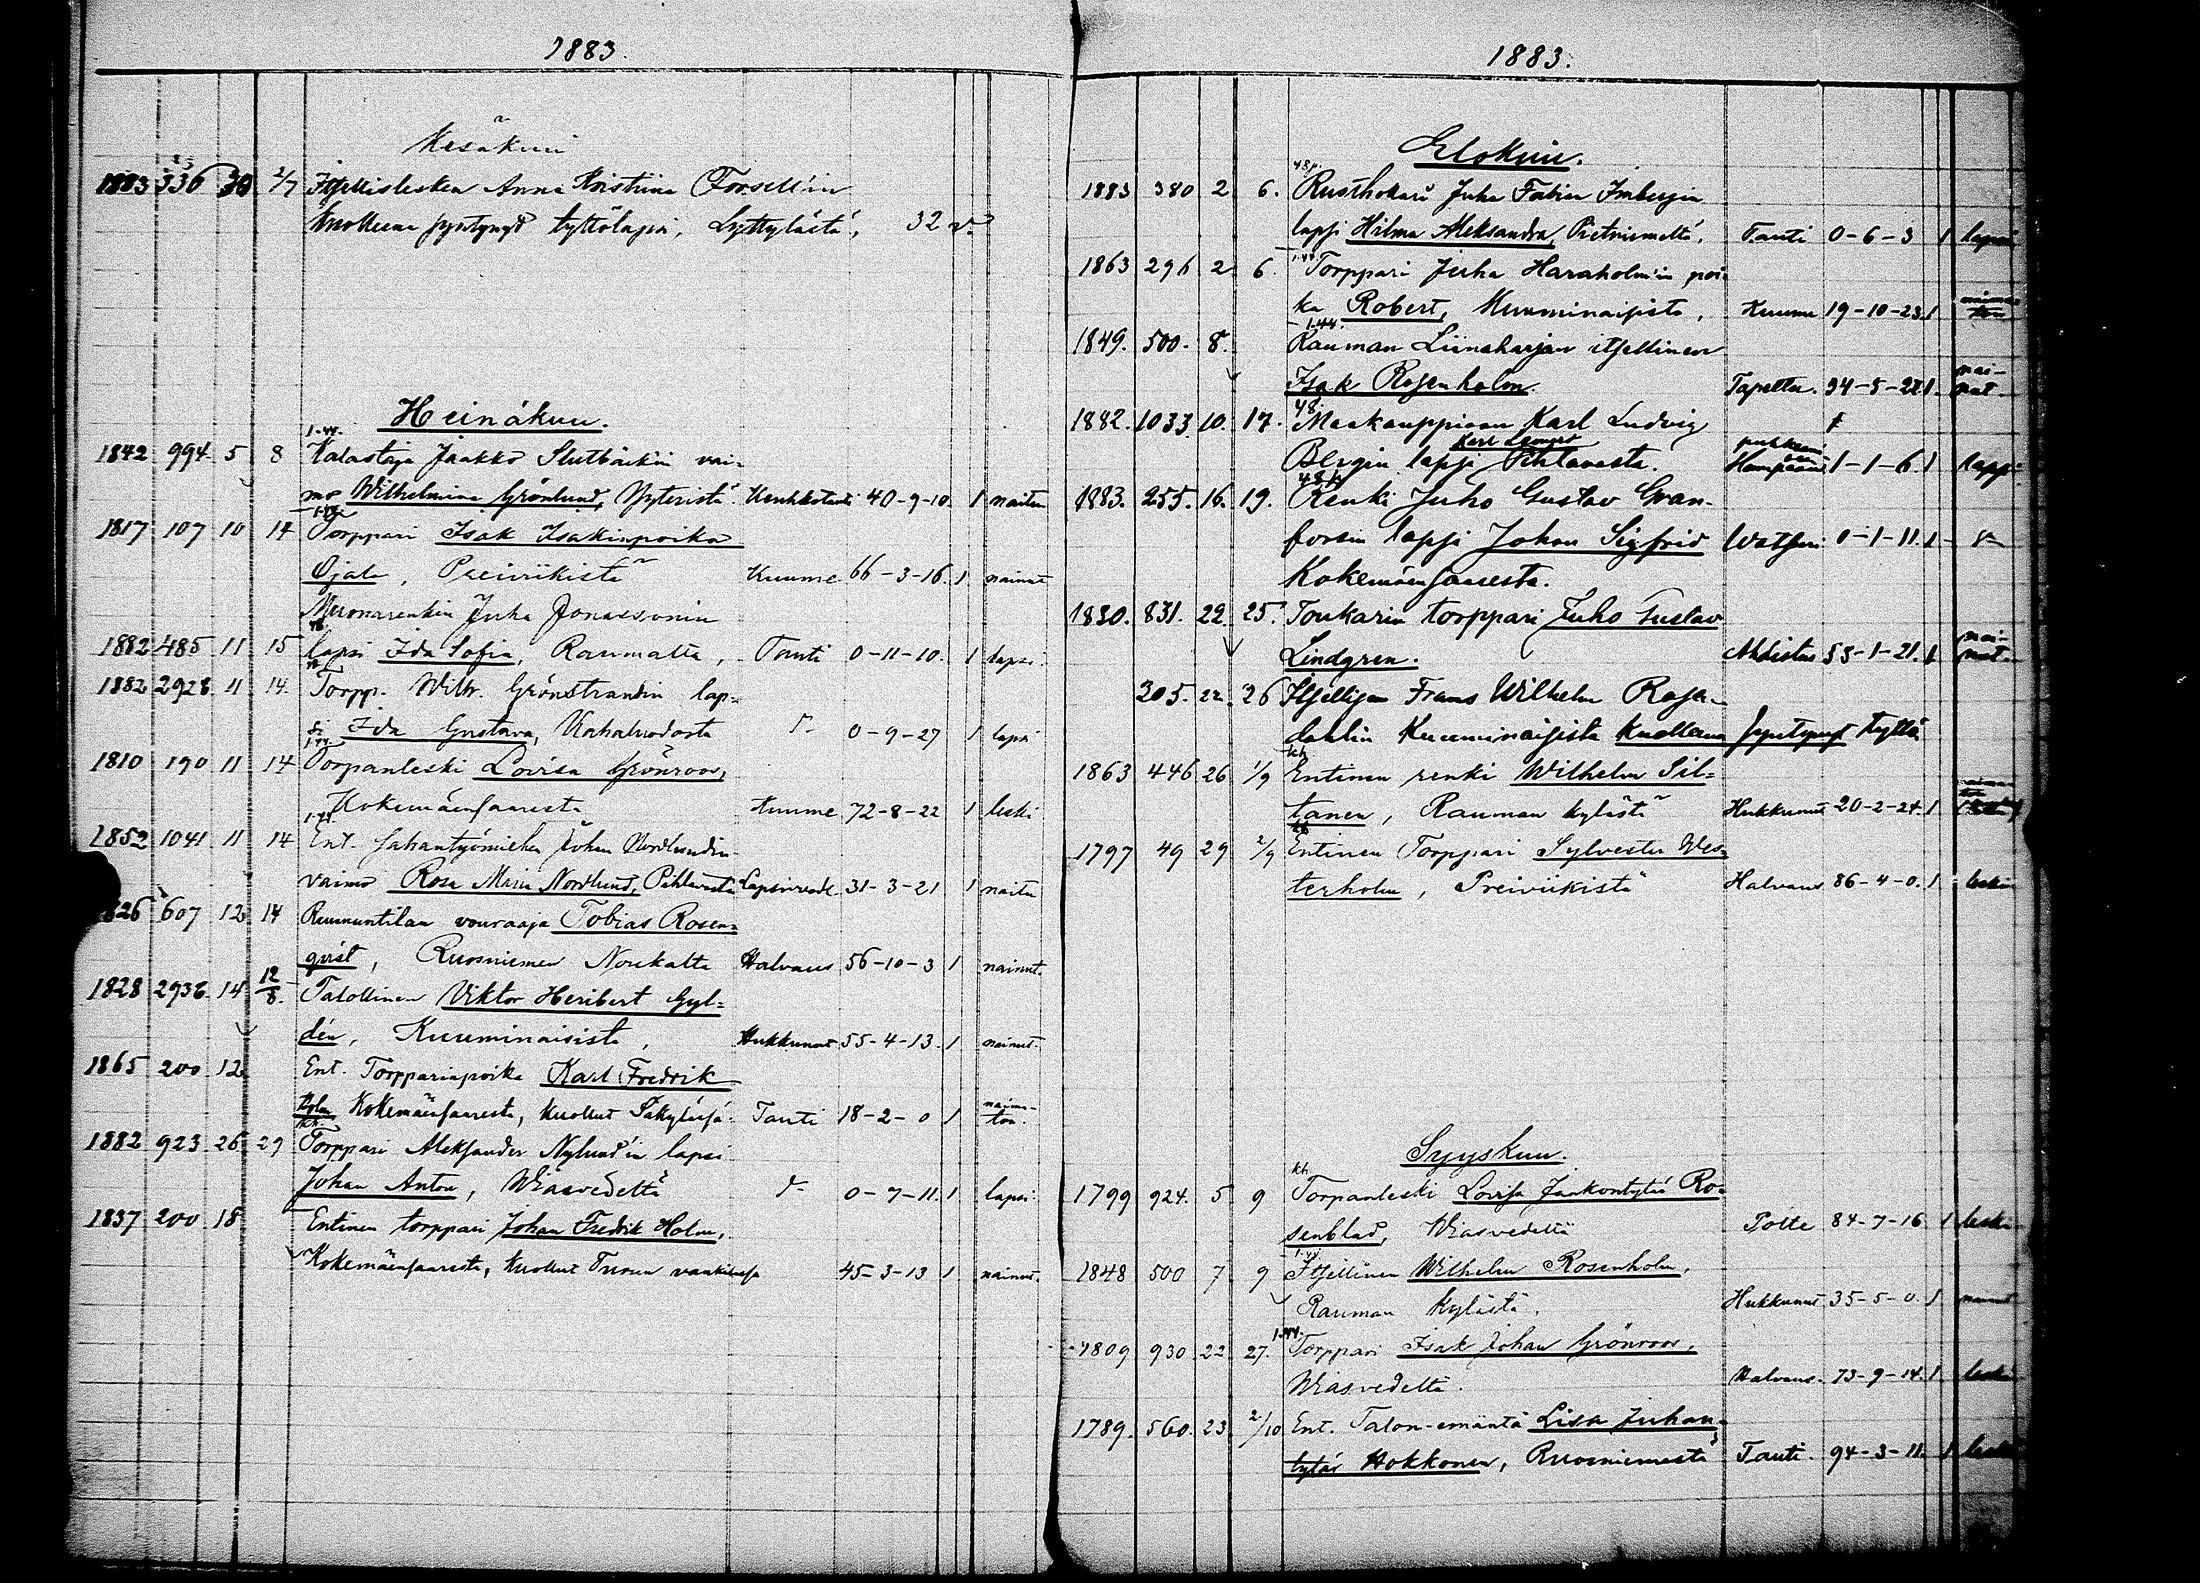 1883.
Kesäkuu
1883 336 30 2/7 Itsellislesken Anna Kristiina Forsell'in
kuolleena syntynyt tyttölapsi, Lyttylästä, 32 v.
Heinäkuu.
1842 994 5 8 Kalastaja Jaakko Slutbäckin vai-
mo Wilhelmina Grönlund, Yyteristä Keuhkotauti 40-9-10. 1 naitu
1817 107 10 14 Torppari Isak Isakinpoika
Ojala, Preiviikistä Kuume 66-3-16. 1 nainut
Muonarenkin Juha Jonassonin
1882 485 11 15 lapsi Ida Sofia, Raumalta, Tauti 0-11-10. 1 lapsi.
1882 2928 11 14. Torpp. Wilh. Grönstrandin lap-
si Ida Gustava, 0-9-27 1 lapsi
1810 190 11 14 Torpanleski Lovisa Grönroos,
Kokemäensaaresta Kuume 72-8-22 1 leski
1852 1041 11 14 Ent. sahantyömiehen Johan Nordlundin
vaimo Rosa Maria Nordlund, Pihlavasta 31-3-21 1 naitu
1826 607 12 14 Ruununtilan vouraaja Tobias Rosen-
qvist, Ruosniemen Noukalta Halvaus 56-10-3 1 nainut.
1828 2936. 14 12/8. Talollinen Viktor Heribert Gyl-
dén, Kuuminaisista, Hukkunut 55-4-13. 1 nainut.
1865 200 12 Ent. Torpparinpoika Karl Fredrik
Kokemäensaaresta, kuollut Säkylässä. Tauti 18-2-0 1 naima-
ton.
1882 923 26 29 Torppari Aleksander Nylund'in lapsi
Johan Anton, Wiasvedeltä 0-7-11. 1 lapsi.
1837 200 18. Entinen torppari Johan Fredrik Holm,
Kokemäensaaresta, kuollut Turun vankilassa 45-3-13 1 nainut.
1883.
Elokuu.
1883 380 2 6. Rusthollari Juha Fabian Imbergin
lapsi Hilma Aleksandra, Pietniemeltä. Tauti 0-6-3 1 lapsi
1863 296 2 6. Torppari Juha Haraholm'in poi-
ka Robert, Kuuminaisista, Kuume 19-10-23. 1
1849. 500. 8. Rauman Liinaharjan itsellinen
Isak Rosenholm. Tapettu. 34-5-21. 1. nai-
nut.
1882. 1033 10. 17. Maakauppiaan Karl Ludvig
Bergin lapsi Pihlavasta. 1-1-6. 1 lapsi
1883. 255. 16. 19. Renki Juho Gustav Gran-
forsin lapsi Johan Sigfrid Watsuri 0-1-11. 1
Kokemäensaaresta.
1830. 831. 22. 25. Toukarin torppari Juho Gustav
Lindgren. Ahdistus 53-1-21. 1 nai-
nut.
305. 22. 26 Itsellisen Frans Wilhelm Rosen-
dahlin Kuuminaisista kuolleena syntynyt tyttö
1863 446 26 1/9 Entinen renki Wilhelm Sil-
tanen, Rauman kylästä Hukkunut 20-2-24. 1
1797 49 29 2/9 Entinen Torppari Sylvester Wes-
terholm, Preiviikistä Halvaus 86-4-0. 1 leski
Syyskuu.
1799 924. 5 9 Torpanleski Lovisa Jaakontytär Ro-
senblad, Wiasvedeltä Polte 84-7-16. 1 leski
1848 500 7 9 Itsellinen Wilhelm Rosenholm,
Rauman kylästä. Hukkunut 35-5-0. 1 nainut
1809 930 22 27. Torppari Isak Johan Grönroos,
Wiasvedeltä. Halvaus. 73-9-14. 1 leski
1789. 560. 23 2/10 Ent. Talon-emäntä Lisa Juhan-
tytär Hokkonen, Ruosniemestä Tauti. 94-3-11. 1 leski